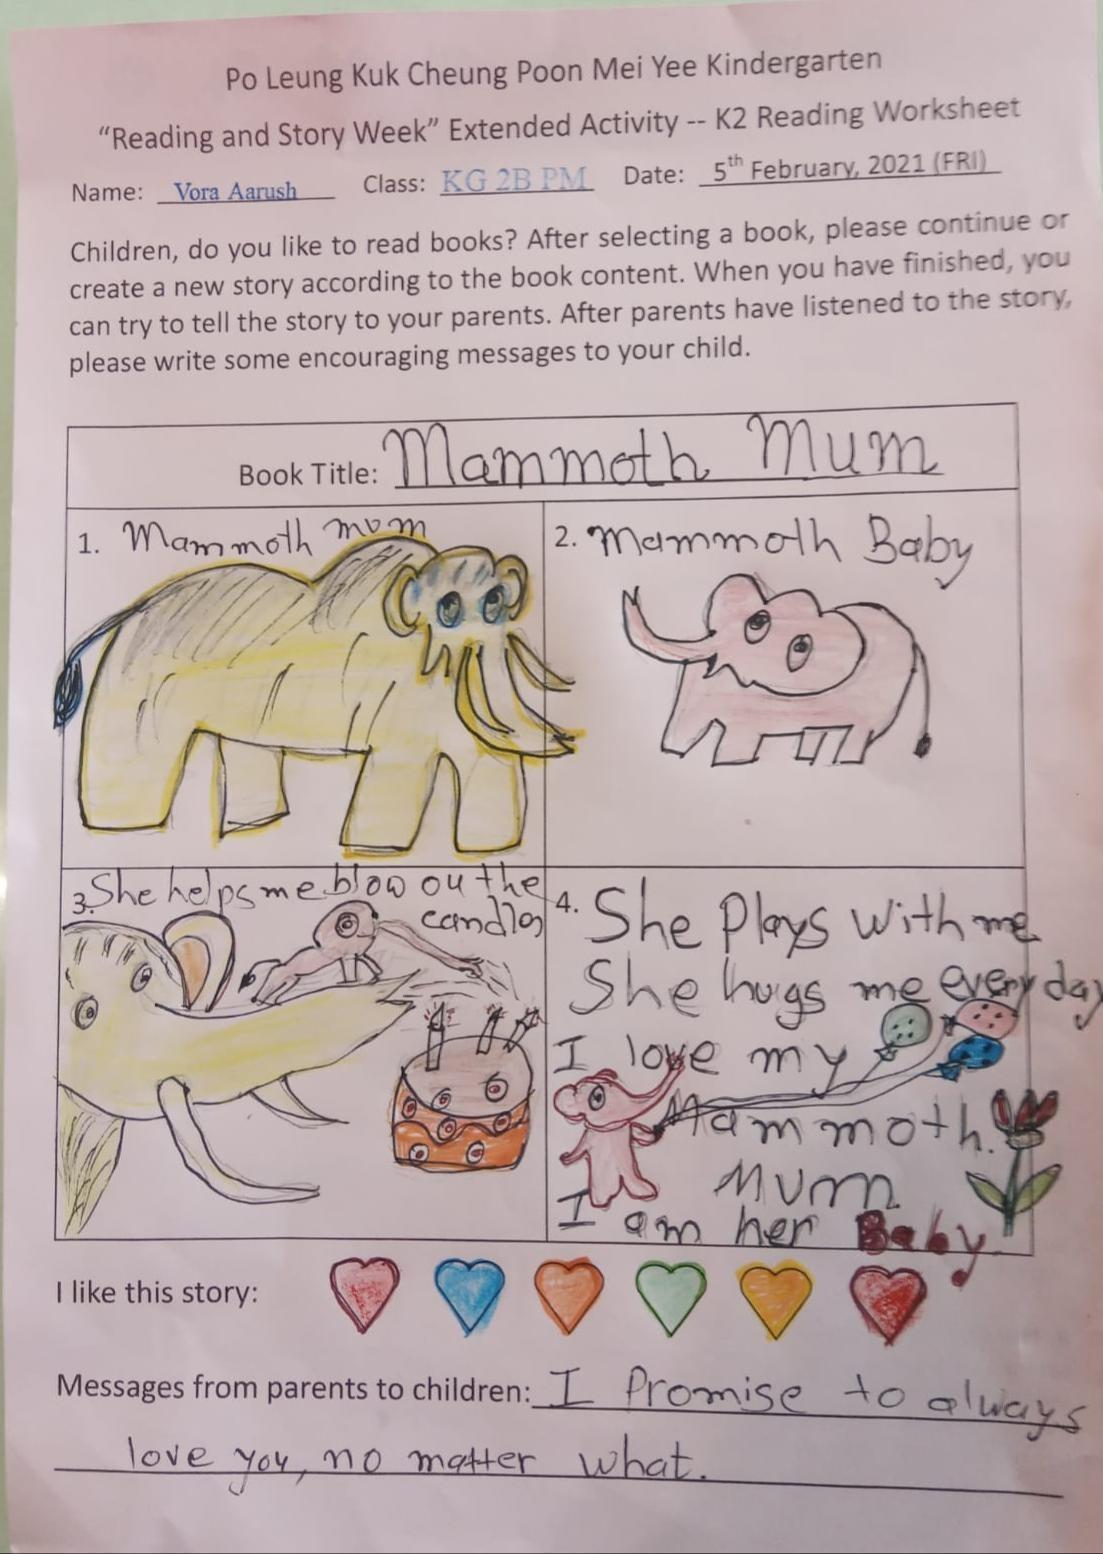 Po Leung Kuk Cheung Poon Mei Yee Kindergarten
“Reading and Story Week” Extended Activity -- K2 Reading Worksheet
Name: Vora Aarush Class: KG 2B PM Date: 5th February, 2021 (FRI)
Children, do you like to read books? After selecting a book, please continue or
create a new story according to the book content. When you have finished, you
can try to tell the story to your parents. After parents have listened to the story,
please write some encouraging messages to your child.
Book Title: Mammoth Mum
1. Mammoth mum
2. Mammoth Baby
3. She helps me blow ou the
candles
4. She Plays with me
She hugs me every day
I love my
Mammoth.
Mum
I am her Baby.
I like this story:
Messages from parents to children: I Promise to always
love you, no matter what.